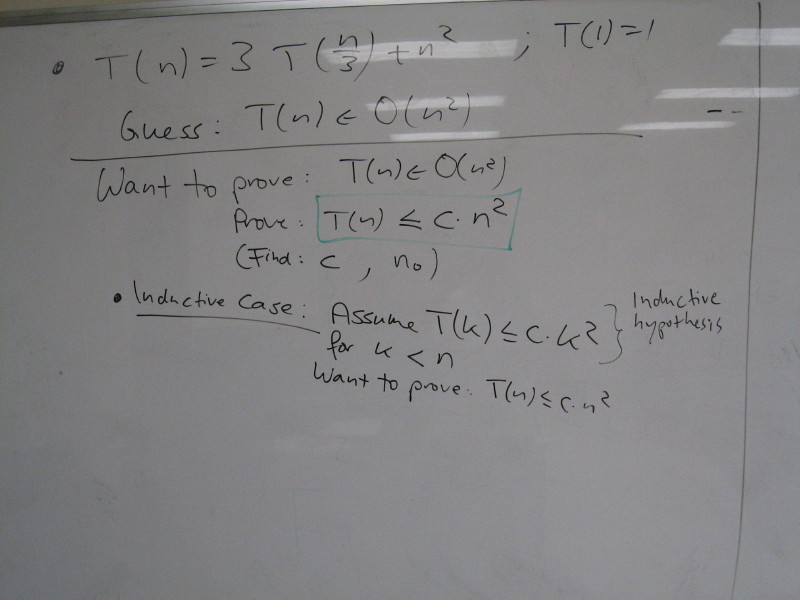 • T(n) = 3 T(n/3) + n² ; T(1) = 1
Guess: T(n) ∈ O(n²)
Want to prove: T(n) ∈ O(n²)
Prove: T(n) ≤ c · n²
(Find: c , n₀)
• Inductive Case: Assume T(k) ≤ c · k² } Inductive hypothesis
for k < n
Want to prove: T(n) ≤ c · n²